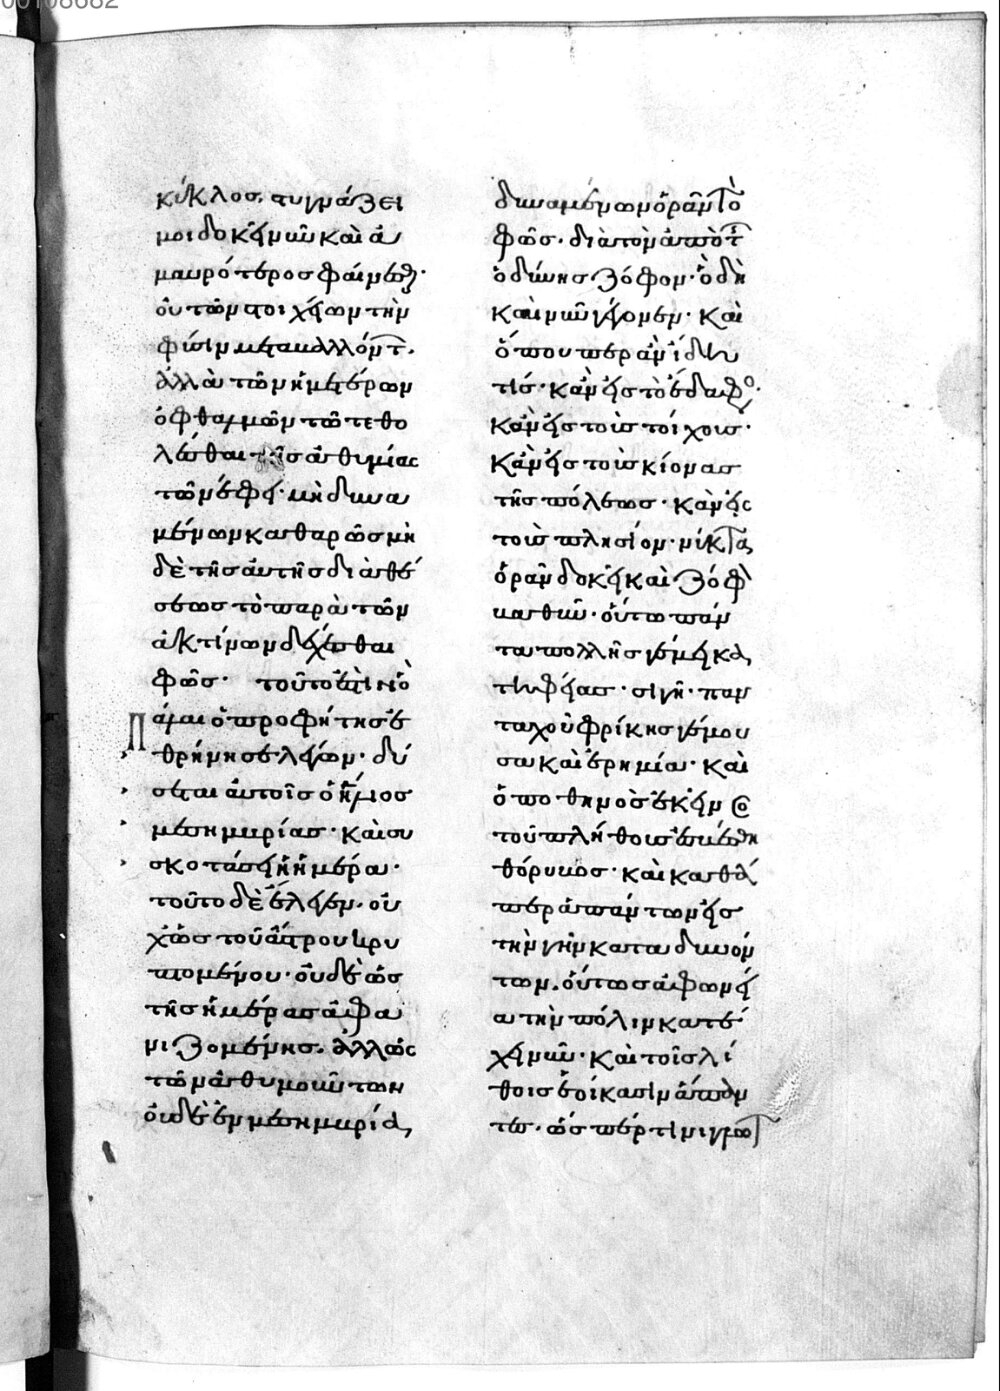 00108682
κύκλος, στυγνάζει
μοι δοκεῖ νῦν καὶ ἀ
μαυρότερος φαίνεσθ(αι)·
οὐ τῶν στοιχείων τὴν
φύσιν μεταβαλλόντ(ων).
ἀλλὰ τῶν ἡμετέρων
ὀφθαλμῶν τῶ τεθο
λῶσθαι τῆς ἀθυμίας
τῶ νέφει· μὴ δυνα
μένων καθαρῶς μη
δὲ τῆς αὐτῆς διαθέ
σεως τὸ παρὰ τῶν
ἀκτίνων δέχεσθαι
φῶς· τοῦτο ἐστὶν ὃ
πάλαι ὁ προφήτης ἐ
θρήνησε λέγων· δύ
σεται αὐτοῖς ὁ ἥλιος
μεσημβρίας· καὶ συ
σκοτάσει ἡ ἡμέρα·
τοῦτο δὲ ἔλεγεν. οὐ
χ ὡς τοῦ ἄστρου κρυ
πτομένου· οὐδὲ ὡς
τῆς ἡμέρας ἀφα
νιζομένης. ἀλλ ὡς
τῶν ἀθυμούντων
οὐδὲ ἐν μεσημβρία
δυναμένων ὁρᾶν τὸ
φῶς· διὰ τὸν ἀπὸ τ(ῆς)
ὀδύνης ζόφον· ὃ δὴ
καὶ νῦν γέγονεν· καὶ
ὅπουπερ ἂν ἴδη
τίς· κἂν εἰς τὸ ἔδαφο(ς)·
κἂν εἰς τοὺς τοίχους·
κἂν εἰς τοὺς κίονας
τῆς πόλεως· κἂν εἰς
τοὺς πλησίον· νύκτα
ὁρᾶν δοκεῖ καὶ ζόφ(ον)
βαθύν· οὕτω πάν
τα πολλῆς γέμει κα
τηφείας· σιγὴ παν
ταχοῦ φρίκης γέμου
σα καὶ ἐρημία· καὶ
ὁ ποθηνὸς ἐκεῖνος
τοῦ πλήθους ἐσβέσθη
θόρυβος· καὶ καθά
περ ἁπάντων εἰς
τὴν γῆν καταδύν
των. οὕτως ἀφωνί
α τὴν πόλιν κατέ
χει νῦν· καὶ τοῖς λί
θοις ἐοίκασιν ἅπαν
τες. ὥσπερ τινὶ γλωτ